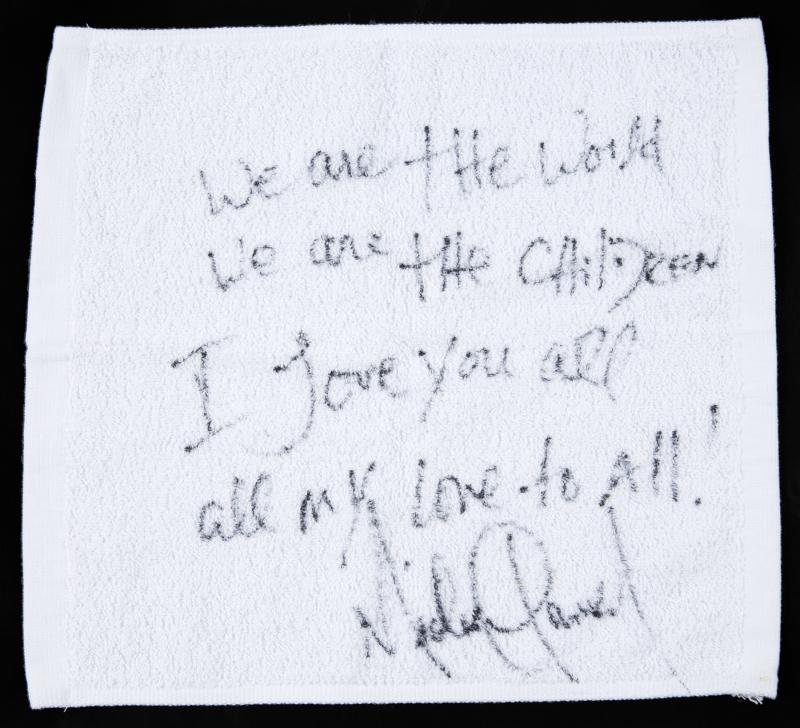 We are the World
We are the Children
I love you all
all my love to All!